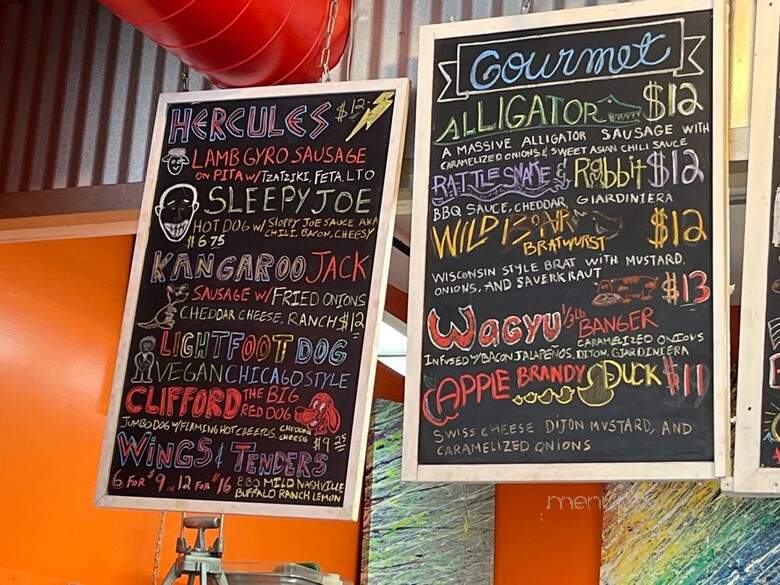 HERCULES $12
LAMB GYRO SAUSAGE
ON PITA W/TZATZIKI, FETA, LTO
SLEEPY JOE
HOT DOG W/ SLOPPY JOE SAUCE AKA
CHILI, BACON, CHEESY
$6 75
KANGAROO JACK
SAUSAGE W/FRIED ONIONS
CHEDDAR CHEESE, RANCH $12
LIGHTFOOT DOG
VEGAN CHICAGO STYLE
CLIFFORD THE BIG
RED DOG
JUMBO DOG W/FLAMING HOT CHEETOS, CHEDDAR
CHEESE $9 25
WINGS & TENDERS
6 FOR $9 12 FOR $16 BBQ MILD NASHVILLE
BUFFALO RANCH LEMON
Gourmet
ALLIGATOR $12
A MASSIVE ALLIGATOR SAUSAGE WITH
CARAMELIZED ONIONS & SWEET ASIAN CHILI SAUCE
RATTLESNAKE & Rabbit $12
BBQ SAUCE, CHEDDAR, GIARDINIERA
WILD BOAR $12
BRATWURST
WISCONSIN STYLE BRAT WITH MUSTARD,
ONIONS, AND SAUERKRAUT
$13
Wagyu 1/3lb BANGER
CARAMELIZED ONIONS
INFUSED W/BACON JALAPEÑOS, DIJON, GIARDINIERA
APPLE BRANDY DUCK $11
SWISS CHEESE DIJON MUSTARD, AND
CARAMELIZED ONIONS